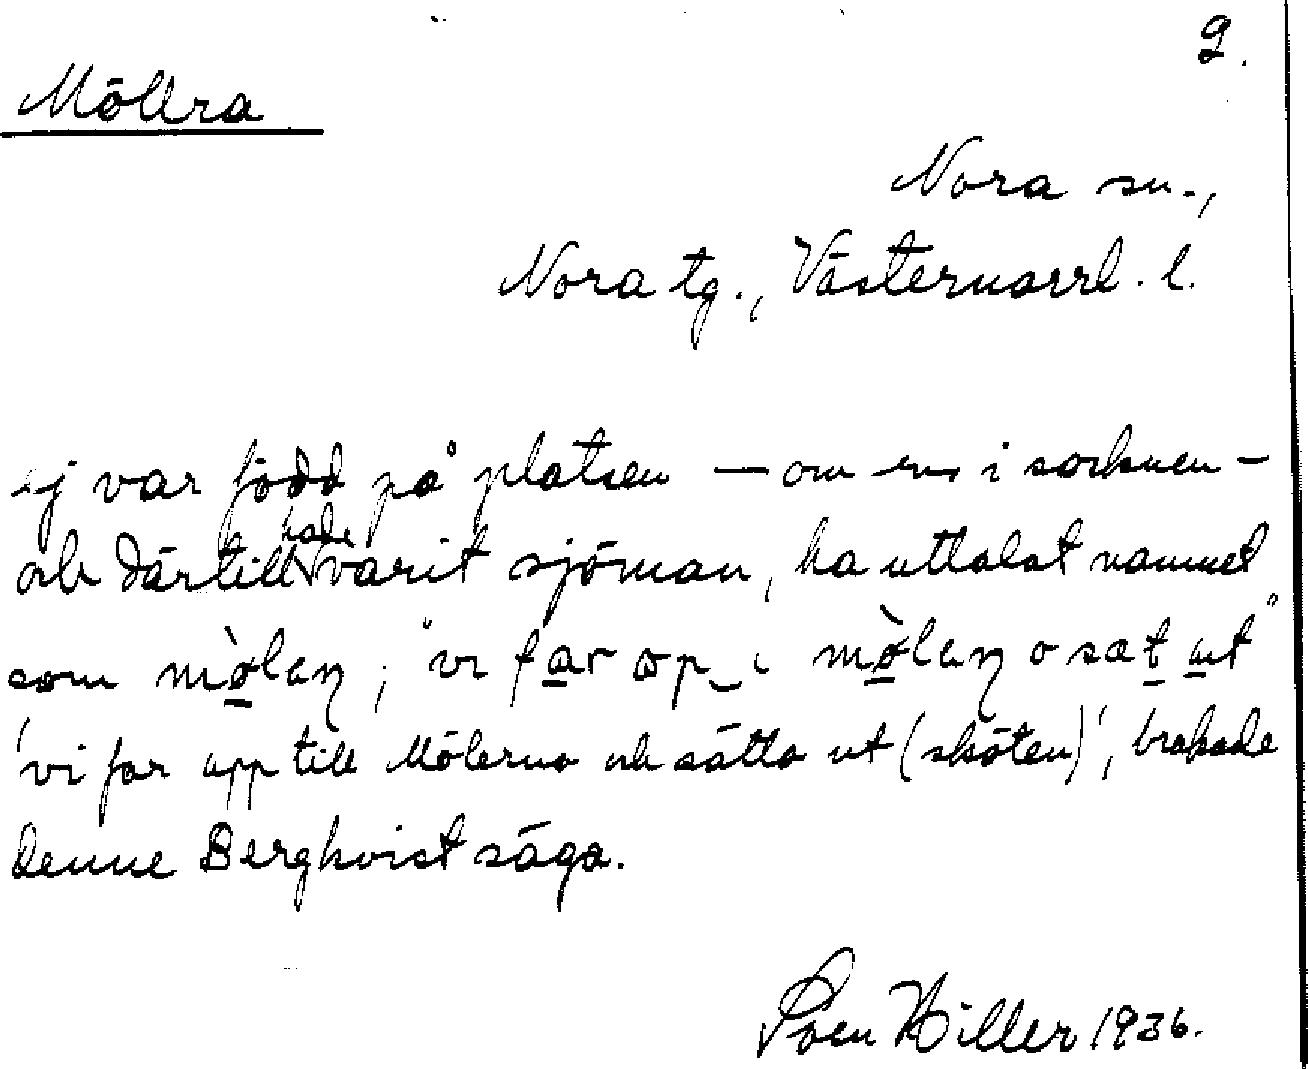 2.
Möllra
Nora sn.,
Nora tg., Västernorrl. l.
ej var född på platsen — om än i socknen –
och därtill hade varit sjöman, ha uttalat namnet
som mòlaɳ; "vi far op i mòlaɳ o sæt ut"
'vi far upp till Mölerna och sätta ut (sköten)', brukade
denne Berghvist säga.
Sven Hiller 1936.